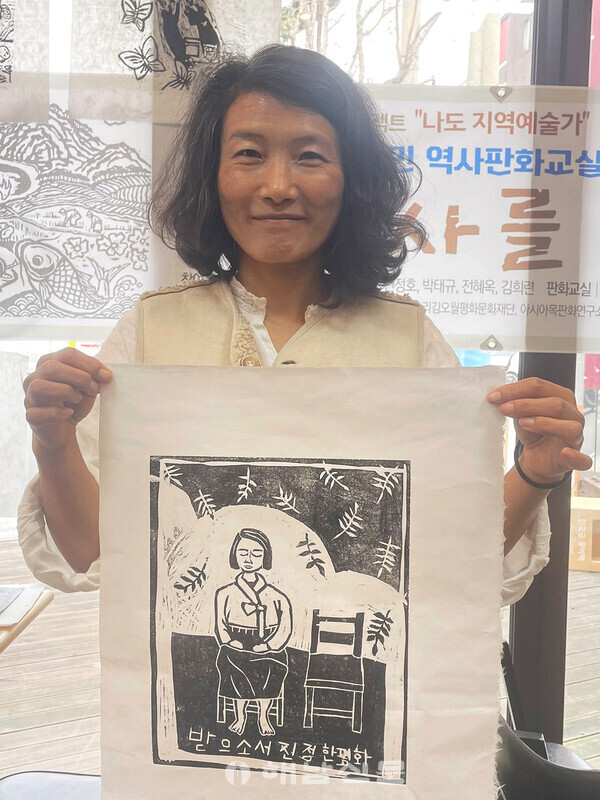 "나도 지역예술가"
역사판화교실
사를
정호, 박태규, 전혜옥, 김희련 판화교실
리김오월평화문화재단, 아시아목판화연구소
받으소서 진점한평화
해남신문